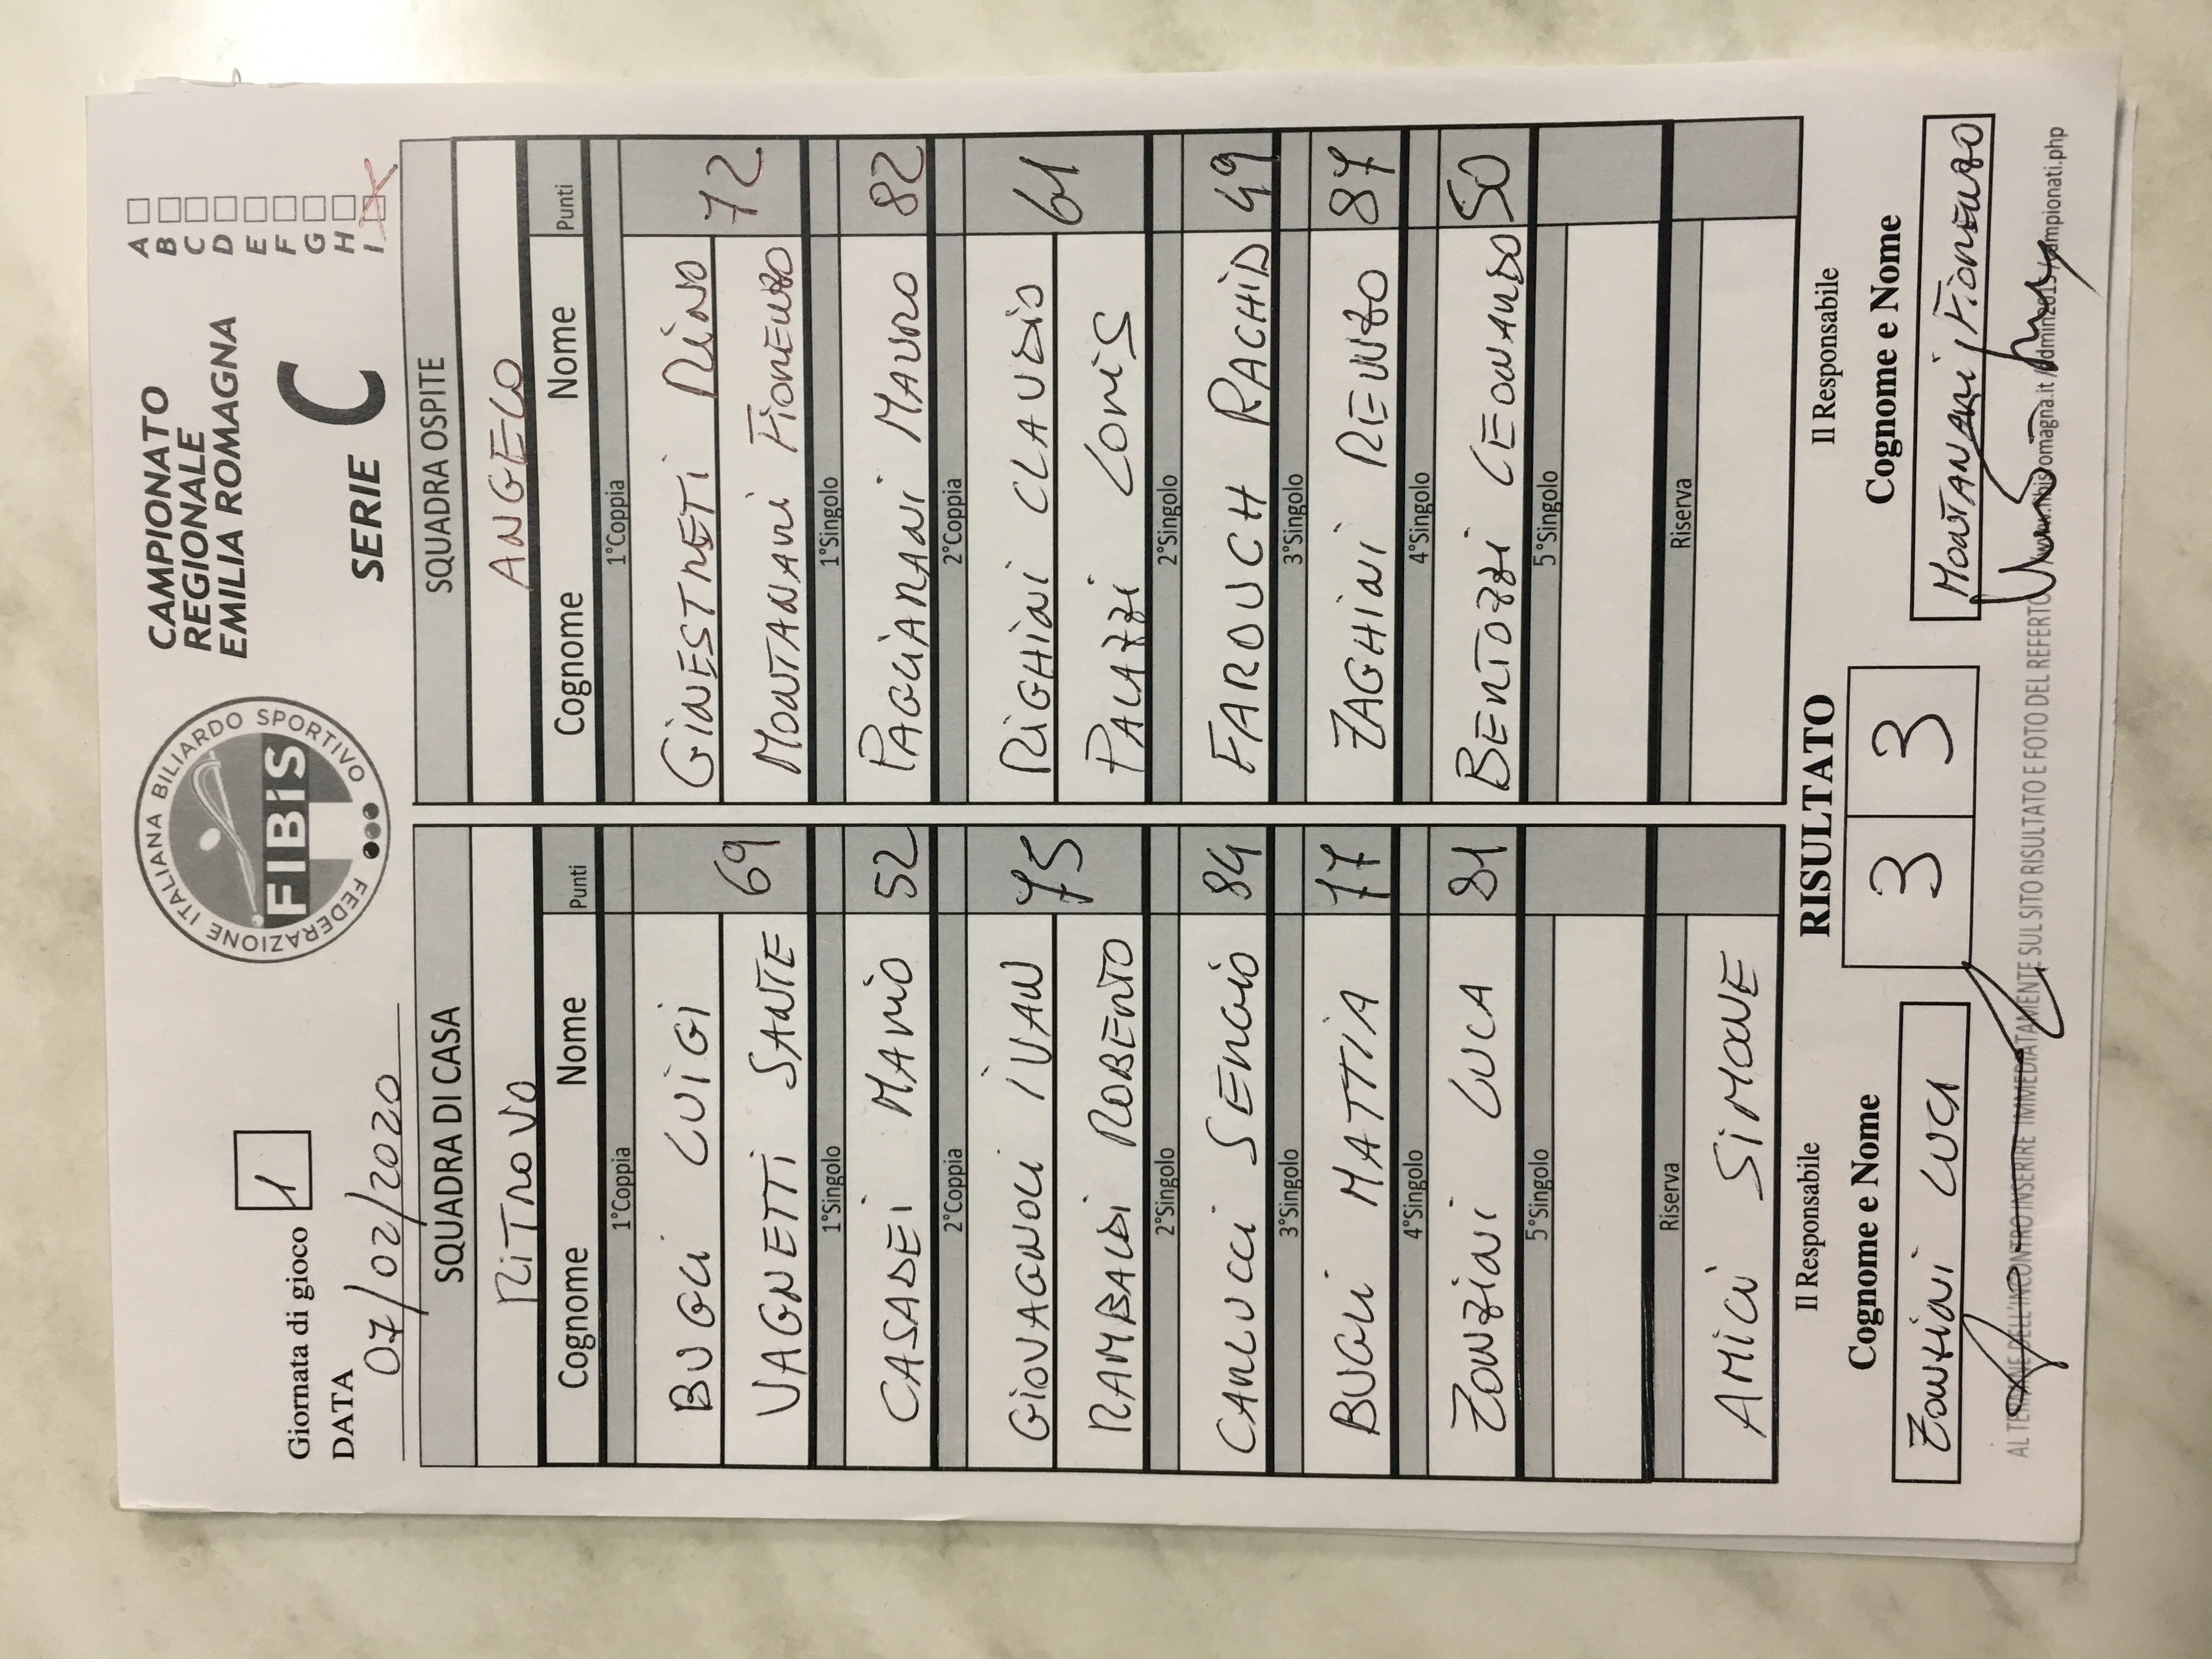 Giornata di gioco 1
DATA 07/02/2020
FEDERAZIONE ITALIANA BILIARDO SPORTIVO
FIBiS
CAMPIONATO
REGIONALE
EMILIA ROMAGNA
SERIE C
A
B
C
D
E
F
G
H
I X
SQUADRA DI CASA
RiTrovo
Cognome Nome Punti
1°Coppia
BUGLi LUiGi
VAGNETTi SANTE 69
1°Singolo
CASADEi MARiO 52
2°Coppia
GiOVAGNOLi iVAN 75
RAMBALDi ROBERTO
2°Singolo
CARLUCCi SERGiO 84
3°Singolo
BUGLi MATTiA 77
4°Singolo
ZONZiNi LUCA 81
5°Singolo
Riserva
AMiCi SiMONE
SQUADRA OSPITE
ANGELO
Cognome Nome Punti
1°Coppia
GiNESTRETi DiNO
MONTANARi FiORENZO 72
1°Singolo
PAGLiARANi MAURO 82
2°Coppia
RiGHiNi CLAUDiO 61
PALAZZi LORiS
2°Singolo
FAROUCH RACHiD 49
3°Singolo
ZAGHiNi RIENZO 87
4°Singolo
BENTOZZi LEONARDO 50
5°Singolo
Riserva
Il Responsabile
Cognome e Nome
ZONZiNi LUCA
RISULTATO
3 3
Il Responsabile
Cognome e Nome
MONTANARi FiORENZO
AL TERMINE DELL'INCONTRO INSERIRE IMMEDIATAMENTE SUL SITO RISULTATO E FOTO DEL REFERTO